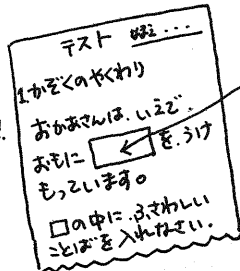 テスト なまえ・・・
1.かぞくのやくわり
おかあさんは、いえで、
おもに□を、うけ
もっています。
□の中に、ふさわしい
ことばを入れなさい。